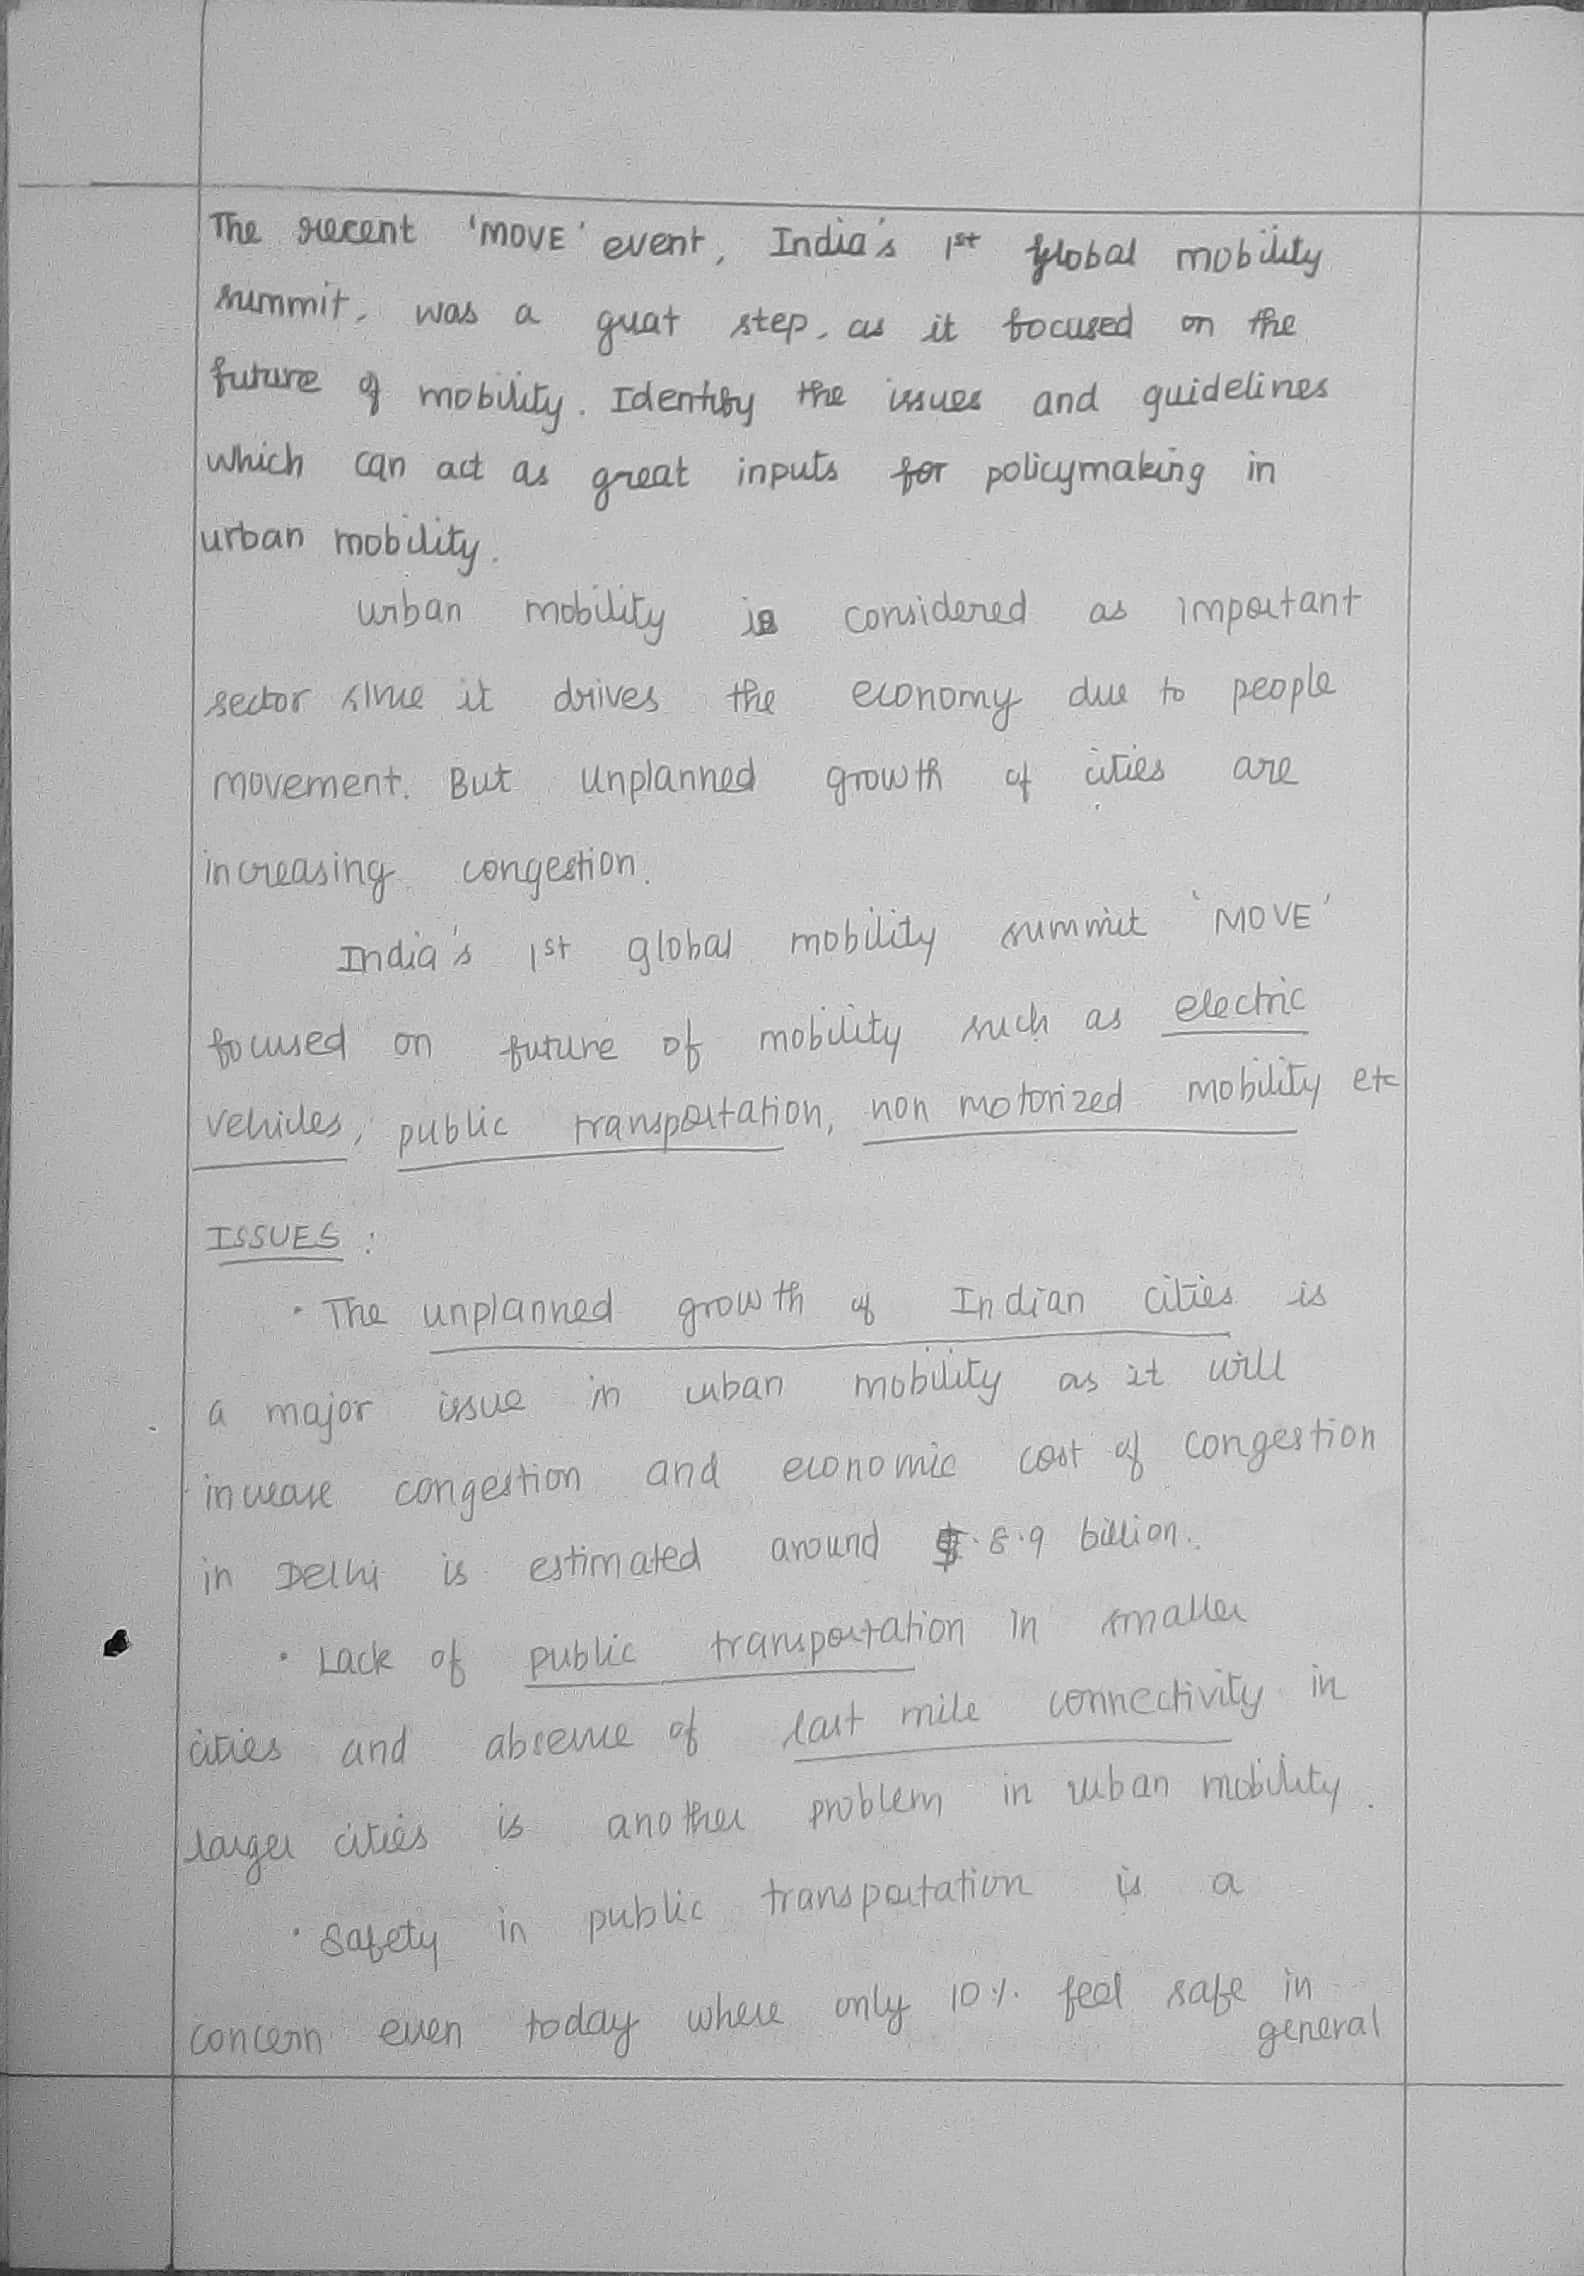 The recent 'MOVE' event, India's 1st global mobility
summit, was a great step, as it focused on the
future of mobility. Identify the issues and guidelines
which can act as great inputs for policymaking in
urban mobility.
urban mobility is considered as important
sector since it drives the economy due to people
movement. But unplanned growth of cities are
increasing congestion.
India's 1st global mobility summit 'MOVE'
focused on future of mobility such as electric
vehicles, public transportation, non motorized mobility etc
ISSUES :
• The unplanned growth of Indian cities is
a major issue in urban mobility as it will
increase congestion and economic cost of congestion
in Delhi is estimated around $.8.9 billion.
• Lack of public transportation in smaller
cities and absence of last mile connectivity in
larger cities is another problem in urban mobility.
• Safety in public transportation is a
concern even today where only 10% feel safe in
general